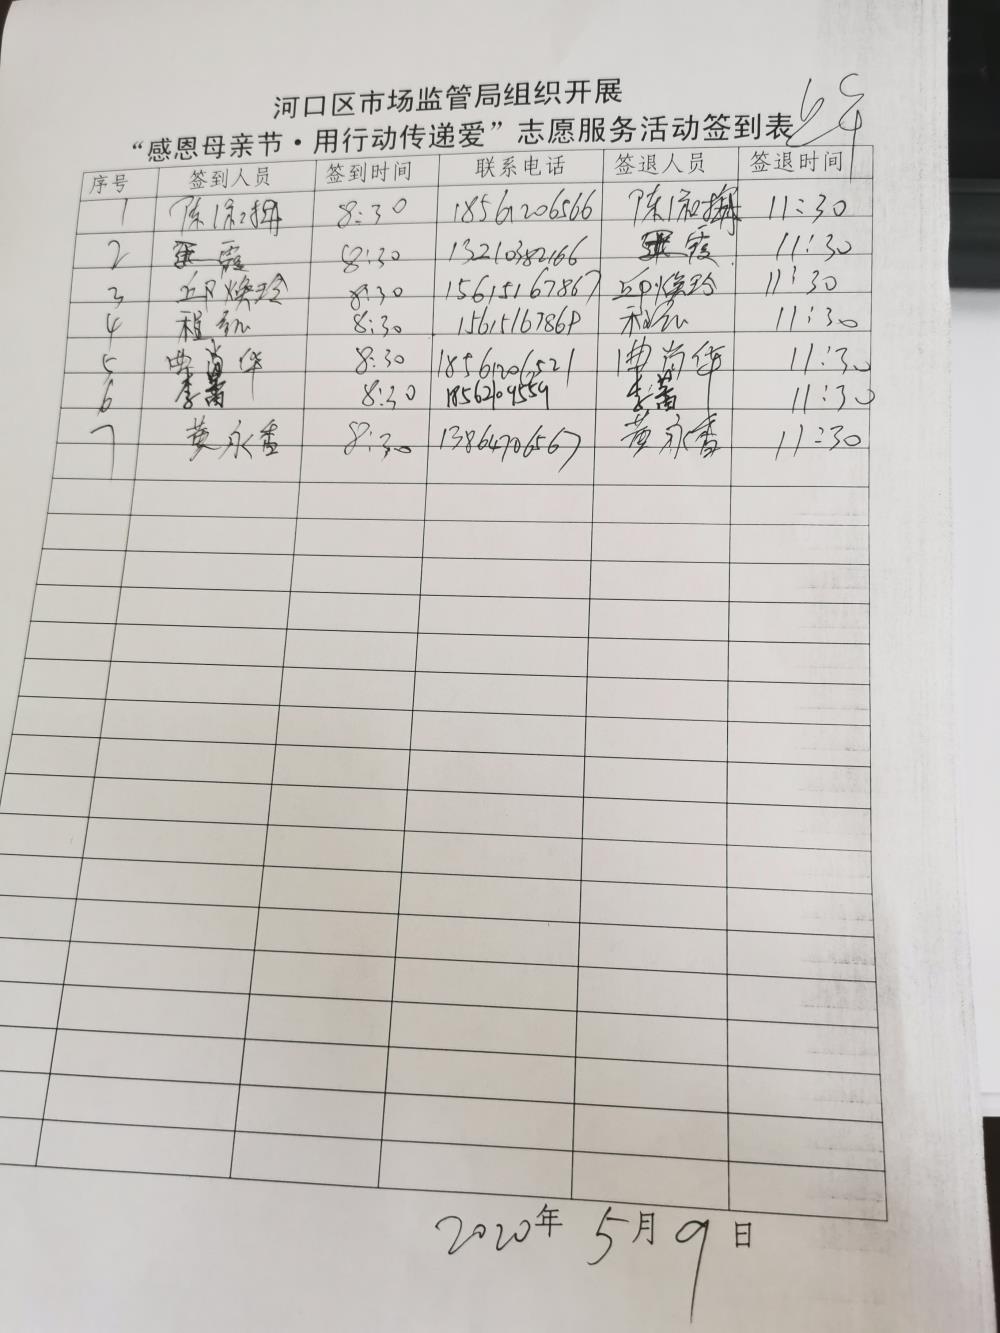 河口区市场监管局组织开展
“感恩母亲节·用行动传递爱”志愿服务活动签到表
序号 签到人员 签到时间 联系电话 签退人员 签退时间
1 8:30 18561206566 11:30
2 霞 8:30 13210382166 霞 11:30
3 邱焕玲 8:30 15615167867 邱焕玲 11:30
4 8:30 11:30
5 曲尚华 8:30 18561206521 曲尚华 11:30
6 李蕾 8:30 李蕾 11:30
7 黄永香 8:30 13864706567 黄永香 11:30
2020年5月9日